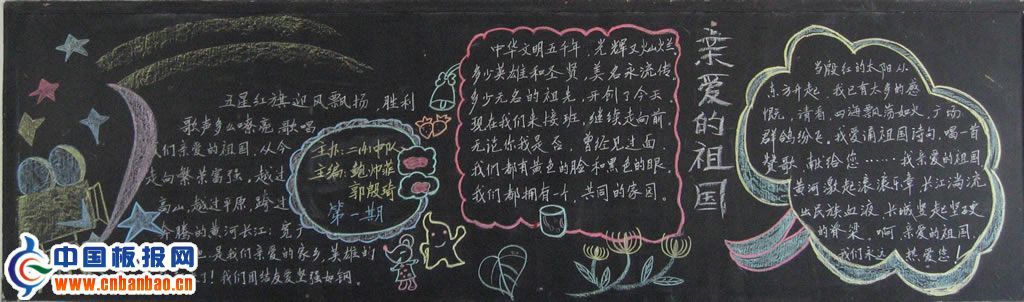 五星红旗迎风飘扬，胜利
歌声多么嘹亮，歌唱
们亲爱的祖国，从今
走向繁荣富强。越过
高山，越过平原，跨过
奔腾的黄河长江；宽广
也是我们亲爱的家乡，英雄的
了！我们团结友爱坚强如钢
主办：
中队
主编：鲍帅菲
郭殷琦
第一期
中华文明五千年，光辉又灿烂。
多少英雄和圣贤，美名永流传。
多少无名的祖先，开创了今天。
现在我们来接班，继续走向前。
无论你我是否，曾经见过面
我们都有黄色的脸和黑色的眼。
我们都拥有一个，共同的家园。
亲爱的祖国
当殷红的太阳从
东方升起，我已有太多的感
慨，请看，四海飘荡如火，广场
群鸽纷飞。我爱诵祖国诗句，唱一首
赞歌，献给您……我亲爱的祖国
黄河激起滚滚乐章，长江淌流
出民族血液，长城竖起坚硬
的脊梁。啊，亲爱的祖国，
我们永远热爱您！
中国板报网
www.cnbanbao.cn